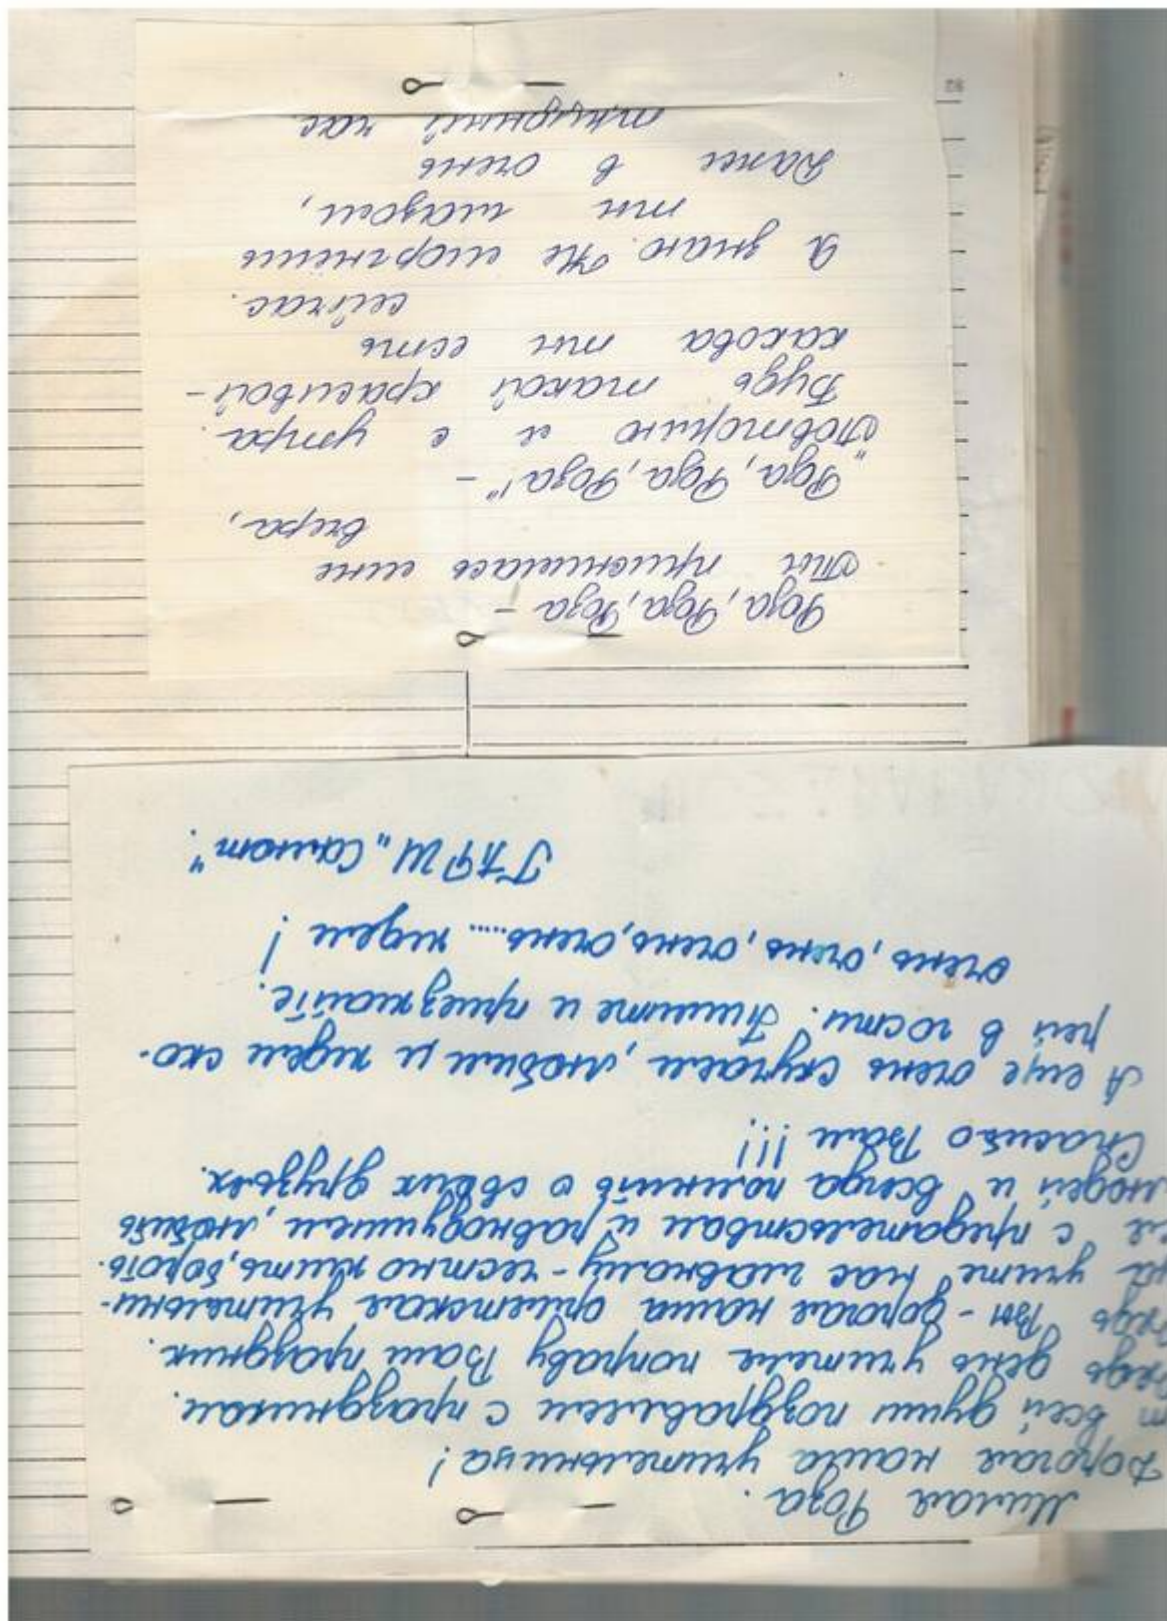 Милая Роза.
Дорогая наша учительница!
от всей души поздравляем с праздником.
Ведь день учителя поправу Ваш праздник.
Ведь Вы - дорогая наша орлятская учительни-
ца учите нас главному - честно жить, бороть-
ся с предательством и равнодушием, любить
людей и всегда помнить о своих друзьях.
Спасибо Вам !!!
А еще очень скучаем, любим и ждем ско-
рей в гости. Пишите и приезжайте.
очень, очень, очень, очень ...... ждем !
ГКРШ „Салют".
Роза, Роза, Роза -
Ты приснилась мне
вчера,
„Роза, Роза, Роза!" -
Повторяю и с утра.
Будь такой красивой -
какова ты есть
сейчас.
Я знаю. Не сморгнёшь
ты глазом,
Даже в очень
трудный час.
92